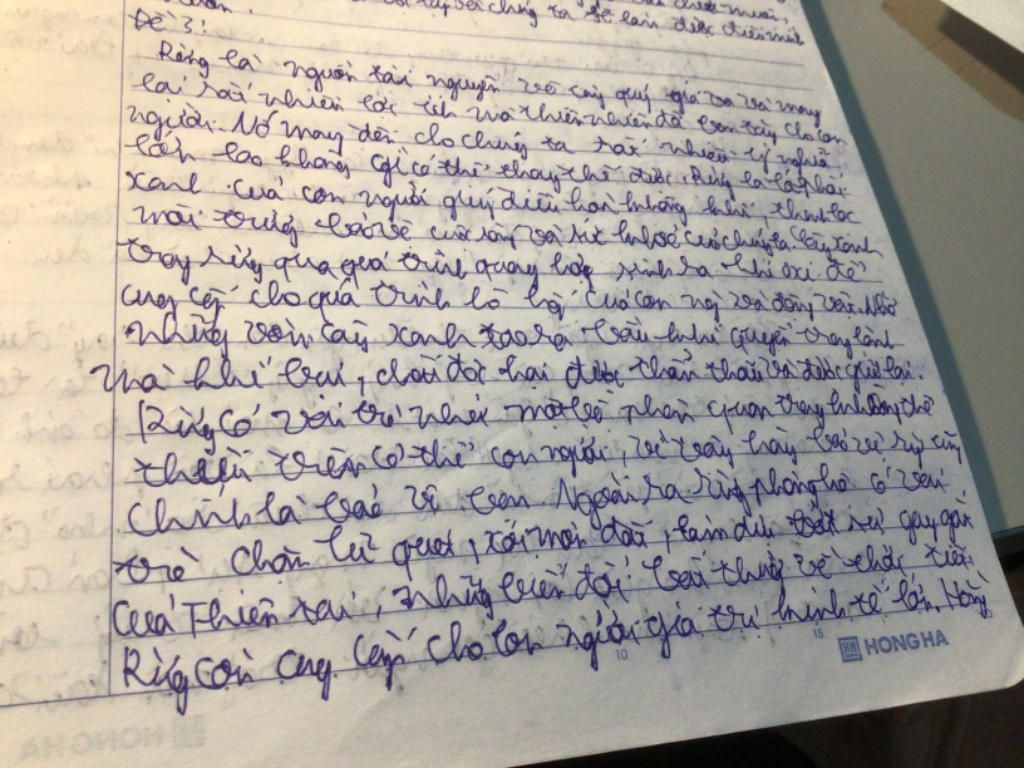 ta sẽ làm được điều mình
Đề 3:
Rừng là nguồn tài nguyên vô cùng quý giá và
lại rất nhiều lợi ích mà thiên nhiên đã ban tặng cho con
người. Nó mang đến cho chúng ta rất nhiều ý nghĩa
lớn lao không gì có thể thay thế được. Rừng là lá phổi
xanh của con người giúp điều hoà không khí, thanh lọc
môi trường bảo vệ cuộc sống và sức khoẻ của chúng ta. Cây xanh
trong rừng qua quá trình quang hợp sinh ra khí oxi để
cung cấp cho quá trình hô hấp của con ng và động vật. Nhờ
những vòm cây xanh tạo ra bầu khí quyển trong lành
mà khí bụi, chất độc hại được và được giữ lại.
Rừng có vai trò như một bộ phận quan trọng không thể
thiếu trên cơ thể con người, vì vậy hãy bảo vệ rừng cũng
chính là bảo vệ Ngoài ra rừng phòng hộ có vai
trò chặn lũ quét, xói mòn đất, làm dịu bớt sự gay gắt
của Thiên tai, những biến đổi bất thường về thời tiết.
Rừng còn cung cấp cho con người giá trị kinh tế lớn. Hàng
10 15 HONG HA
HONG HA